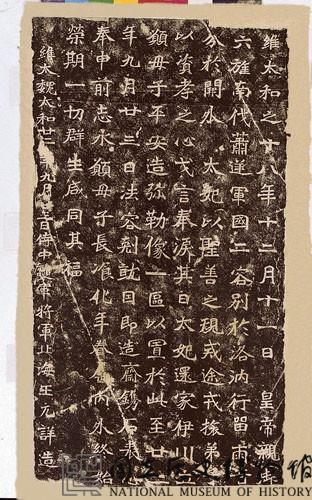 維太和之十八年十二月十一日 皇帝親御
六旌南伐蕭逆軍國二容別於洛汭行留兩音
分於關外太妃以聖善之規戒途戒旅弟子
以資孝之心戈言奉淚其日太妃還家伊川
願母子平安造彌勒像一區以置於此至廿二
年九月廿三日法容剋就因即造齋鐫石表心
奉申前志永願母子長瑜化年眷屬內外終始
榮期一切群生咸同其福
維大魏太和廿二年九月廿三日侍中護軍將軍北海王元詳造
國立歷史博物館
NATIONAL MUSEUM OF HISTORY